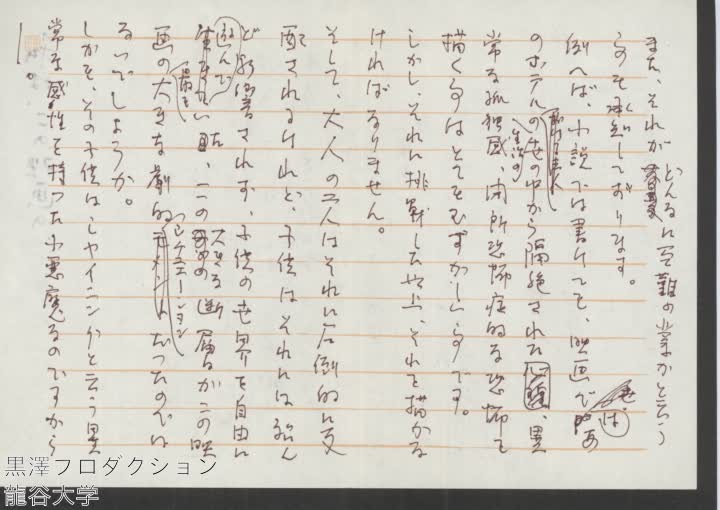 また、それがどんなに至難の業かと云う
事も承知しております。
例へば、小説では書けても、映画では
のホテルの世の中から隔絶された心理、異
常な孤独感、閉所恐怖症的な恐怖を
描く事はとてもむずかしい事です。
しかし、それに挑戦した以上、それを描かな
ければなりません。
そして、大人の二人はそれに圧倒的に支
配されるけれど、子供はそれには殆ん
ど影響されず、子供の世界を自由に
遊んで
居る、この大きな断層がこの映
画の大きな劇的シチュエーションだったのでは
ないでしょうか。
しかも、その子供はシャイニングと云う異
常な感性を持った小悪魔なのですから
。
黒澤プロダクション
龍谷大学